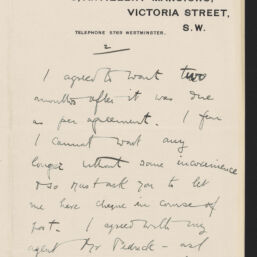 ARTILLERY MANSIONS,
VICTORIA STREET,
S.W.
TELEPHONE 5769 WESTMINSTER.
2
I agreed to wait two
months after it was due
as per agreement. I fear
I cannot wait any
longer without some inconvenience
& so must ask you to let
me have cheque in course of
post. I agreed with my
agent Mr Pedrick - and